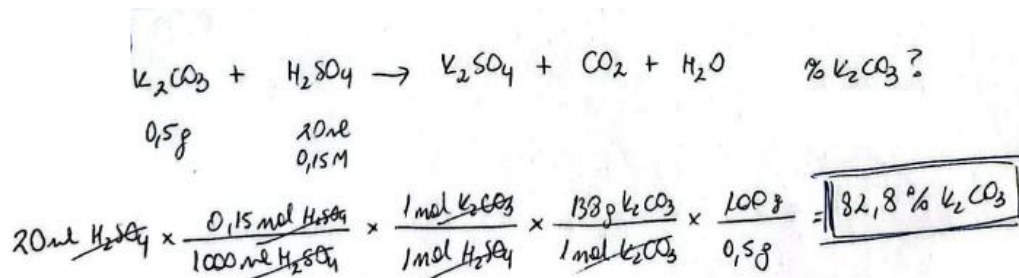 K₂CO₃ + H₂SO₄ → K₂SO₄ + CO₂ + H₂O % K₂CO₃?
0,5g 20ml
0,15M
20ml H₂SO₄ × 0,15 mol H₂SO₄ / 1000 ml H₂SO₄ × 1 mol K₂CO₃ / 1 mol H₂SO₄ × 138g K₂CO₃ / 1 mol K₂CO₃ × 100g / 0,5g = 82,8 % K₂CO₃